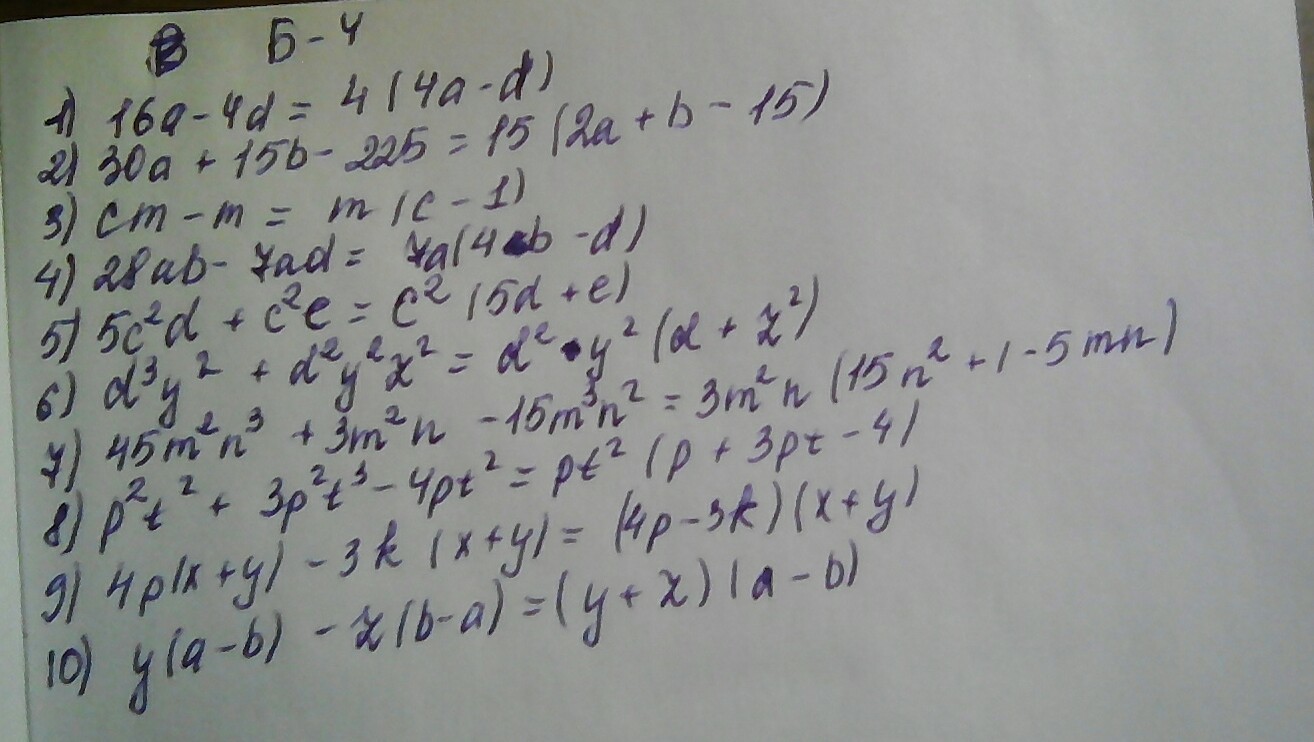 Б - 4
1) 16a - 4d = 4 (4a - d)
2) 30a + 15b - 225 = 15 (2a + b - 15)
3) cm - m = m (c - 1)
4) 28ab - 7ad = 7a (4b - d)
5) 5c²d + c²e = c² (5d + e)
6) d³y² + d²y²z² = d² • y² (d + z²)
7) 45m²n³ + 3m²n - 15m³n² = 3m²n (15n² + 1 - 5mn)
8) p²t² + 3p²t³ - 4pt² = pt² (p + 3pt - 4)
9) 4p(x+y) - 3k (x+y) = (4p - 3k) (x+y)
10) y(a-b) - z(b-a) = (y + z) (a - b)